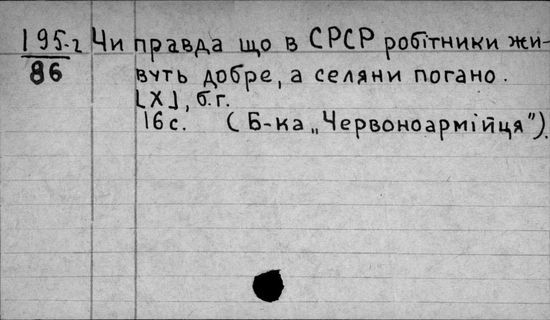 195-г Чи правда що в СРСР робітники жи-
86 вуть добре, а селяни погано.
[Х], б.г.
16 с. (Б-ка „Червоноармійця").